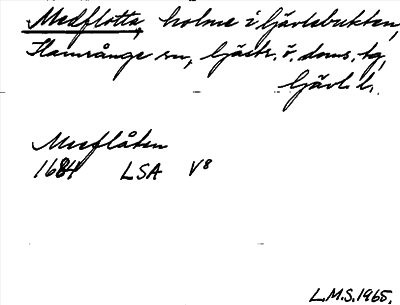 Medflotta, holme i Gävlebukten,
Hamrånge sn, Gästr. ö. doms. tg,
Gävl. l.
Medflåten
1684 LSA V8
L.M.S. 1965.